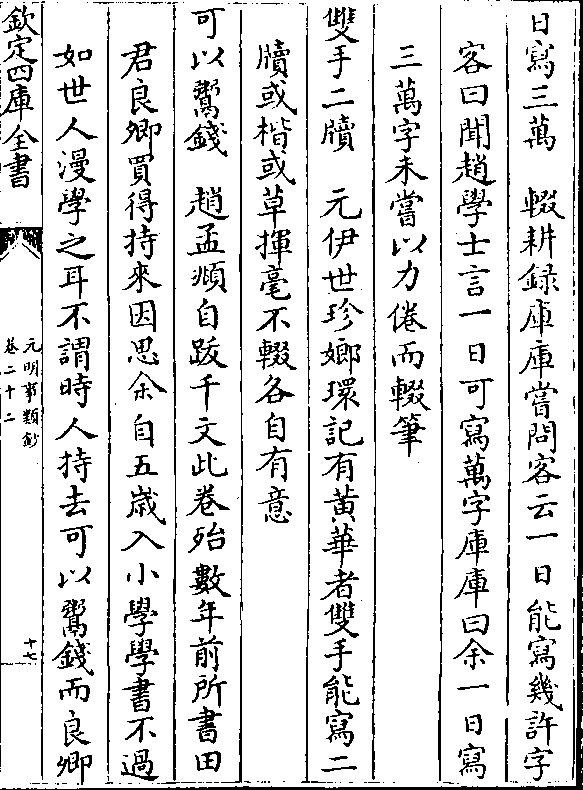 日寫三萬　輟耕録庫庫嘗問客云一日能寫幾許字
客曰聞趙學士言一日可寫萬字庫庫曰余一日寫
三萬字未嘗以力倦而輟筆
雙手二牘　元伊世珍嫏環記有黄華者雙手能寫二
牘或楷或草揮毫不輟各自有意
可以鬻錢　趙孟頫自跋千文此卷殆數年前所書田
君良卿買得持來因思余自五歳入小學學書不過
如世人漫學之耳不謂時人持去可以鬻錢而良卿
欽定四庫全書
元明事類鈔
卷二十二
十七